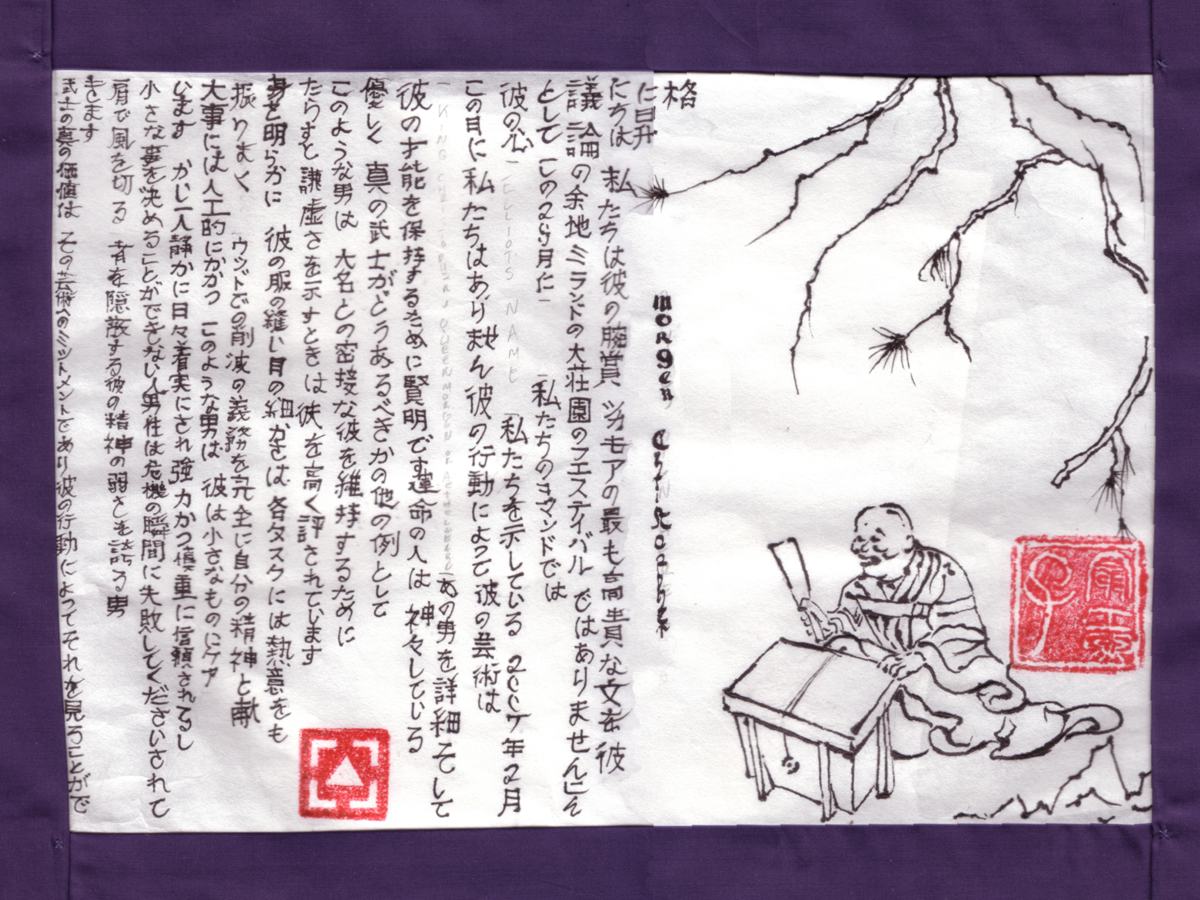 武士の真の価値は その芸術へのミットメントであり 彼の行動によってそれを見ることがで
きます
肩で風を切る 者を隠蔽する彼の精神の弱さを誇る男
小さな事を決めることができない男性は危機の瞬間に失敗してくださいされて
います かし一人静かに日々着実にされ強力かつ慎重に信頼されるし
大事には人工的にかつ このような男は 彼は小さなものにケア
振りまく ウッドでの削減の義務を完全に自分の精神と献
身を明らかに 彼の服の縫い目の細かさは 各タスクには熱意をも
たらすと謙虚さを示すときは 彼を高く評されています
このような男は 大名との密接な彼を維持するために
優しく 真の武士がどうあるべきかの他の例として
彼の才能を保持するために賢明です運命の人は 神々している
KING あの男を詳細そして
この目に私たちはありません彼の行動によって彼の芸術は
彼の公 ELLIOT'S NAME 私たちを示している 年2月
として この 月に 私たちのコマンドでは
議論の余地ミランドの大荘園のフエスティバルではありません
たちは 私たちは彼の腕賞 シカモアの最も高貴な文を彼
に昇
格
morgen Christopher